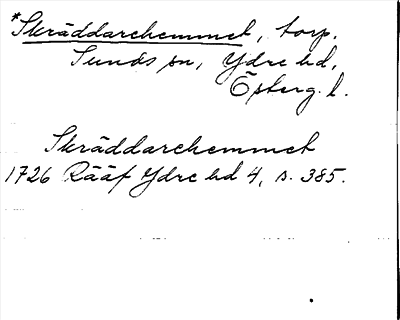 *Skräddarehemmet, torp.
Sunds sn, Ydre hd,
Österg. l.
Skräddarehemmet
1726 Rääf Ydre hd 4, s. 385.